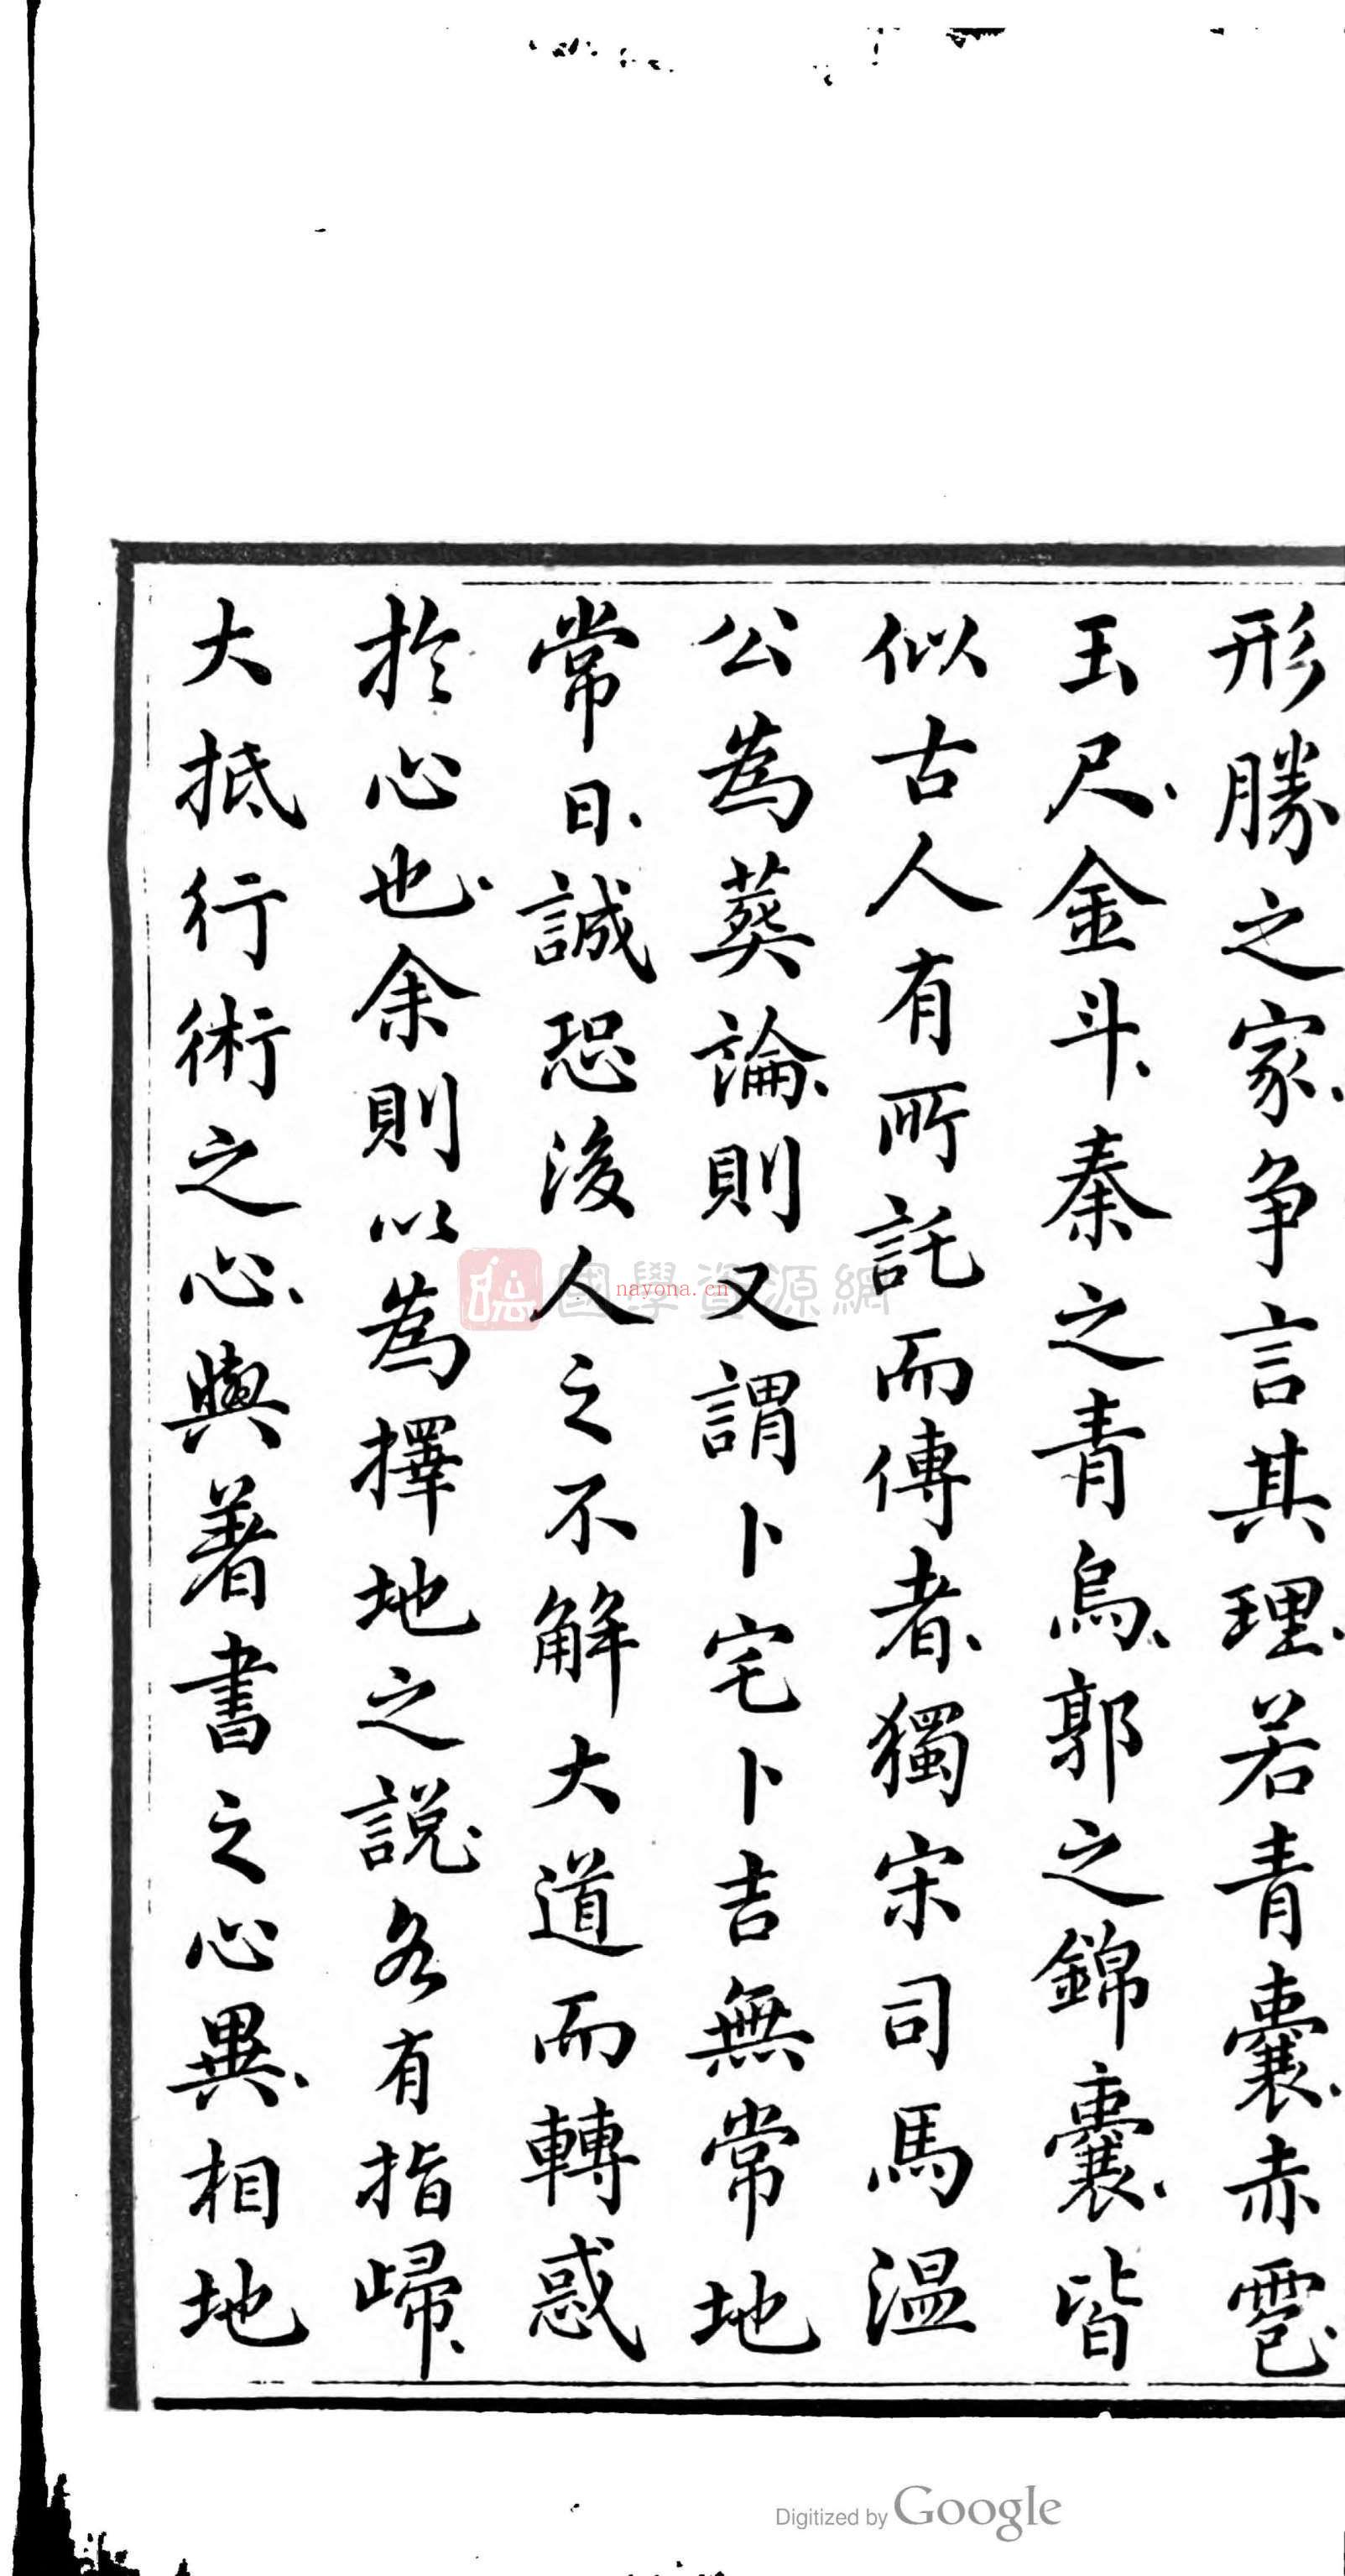 形勝之家、争言其理、若青囊、赤雹、
玉尺、金斗、秦之青烏、郭之錦囊、皆
似古人有所託而傳者、獨宋司馬温
公為葬論、則又謂卜宅卜吉無常地
常日、誠恐後人之不解大道而轉惑
於心也、余則以為擇地之説、各有指歸、
大抵行術之心、與著書之心異、相地
國學資源網
nayona.cn
Digitized by Google